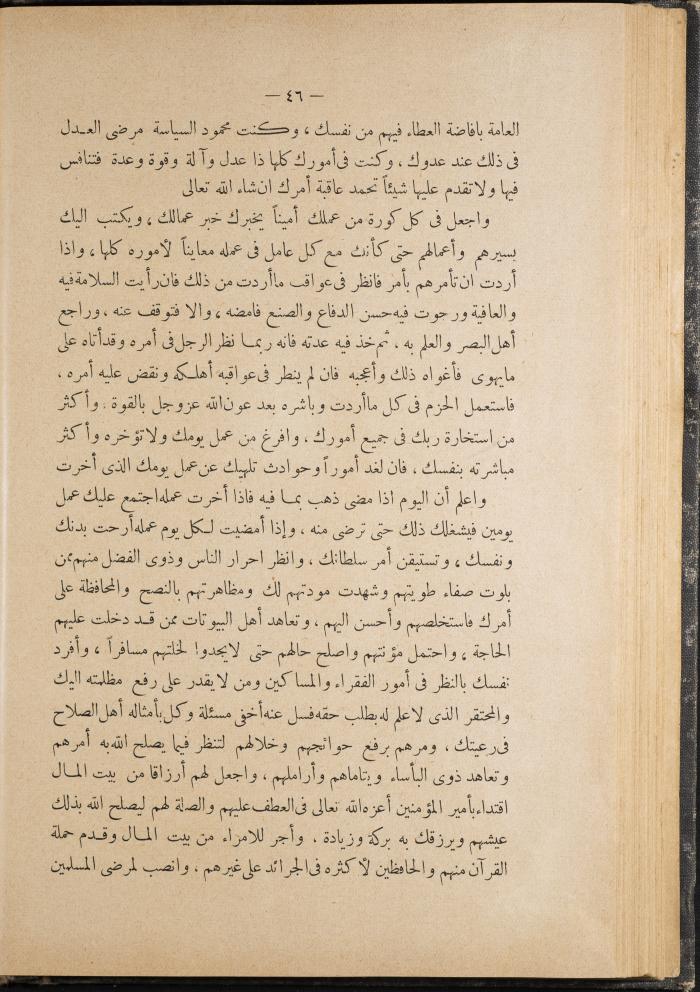 — ٤٦ —
العامة بافاضة العطاء فيهم من نفسك ، وكنت محمود السياسة مرضى العدل
فى ذلك عند عدوك ، وكنت فى أمورك كلها ذا عدل وآلة وقوة وعدة فتنافس
فيها ولا تقدم عليها شيئاً تحمد عاقبة أمرك ان شاء الله تعالى
واجعل فى كل كورة من عملك أميناً يخبرك خبر عمالك ، ويكتب اليك
بسيرهم وأعمالهم حتى كأنك مع كل عامل فى عمله معايناً لأموره كلها ، واذا
أردت ان تأمرهم بأمر فانظر فى عواقب ما أردت من ذلك فان رأيت السلامة فيه
والعافية ورجوت فيه حسن الدفاع والصنع فامضه ، والا فتوقف عنه ، وراجع
أهل البصر والعلم به ، ثم خذ فيه عدته فانه ربما نظر الرجل فى أمره وقد أتاه على
مايهوى فأغواه ذلك وأعجبه فان لم ينظر فى عواقبه أهلكه ونقض عليه أمره ،
فاستعمل الحزم فى كل ما أردت وباشره بعد عون الله عز وجل بالقوة . وأكثر
من استخارة ربك فى جميع أمورك ، وافرغ من عمل يومك ولا تؤخره وأكثر
مباشرته بنفسك ، فان لغد أموراً وحوادث تلهيك عن عمل يومك الذى أخرت
واعلم أن اليوم اذا مضى ذهب بما فيه فاذا أخرت عمله اجتمع عليك عمل
يومين فيشغلك ذلك حتى ترضى منه ، وإذا أمضيت لكل يوم عمله أرحت بدنك
ونفسك ، وتستيقن أمر سلطانك ، وانظر احرار الناس وذوى الفضل منهم ممن
بلوت صفاء طويتهم وشهدت مودتهم لك ومظاهرتهم بالنصح والمحافظة على
أمرك فاستخلصهم وأحسن اليهم ، وتعاهد أهل البيوتات ممن قد دخلت عليهم
الحاجة ، واحتمل مؤنتهم واصلح حالهم حتى لايجدوا لخلتهم مسافراً ، وأفرد
نفسك بالنظر فى أمور الفقراء والمساكين ومن لايقدر على رفع مظلمته اليك
والمحتقر الذى لاعلم له بطلب حقه فسل عنه أخفى مسئلة وكل بأمثاله أهل الصلاح
فى رعيتك ، ومرهم برفع حوائجهم وخلالهم لتنظر فيما يصلح الله به أمرهم
وتعاهد ذوى البأساء ويتاماهم وأراملهم ، واجعل لهم أرزاقا من بيت المال
اقتداء بأمير المؤمنين أعزه الله تعالى فى العطف عليهم والصلة لهم ليصلح الله بذلك
عيشهم ويرزقك به بركة وزيادة . وأجر للامراء من بيت المال وقدم حملة
القرآن منهم والحافظين لأكثره فى الجرائد على غيرهم ، وانصب لمرضى المسلمين